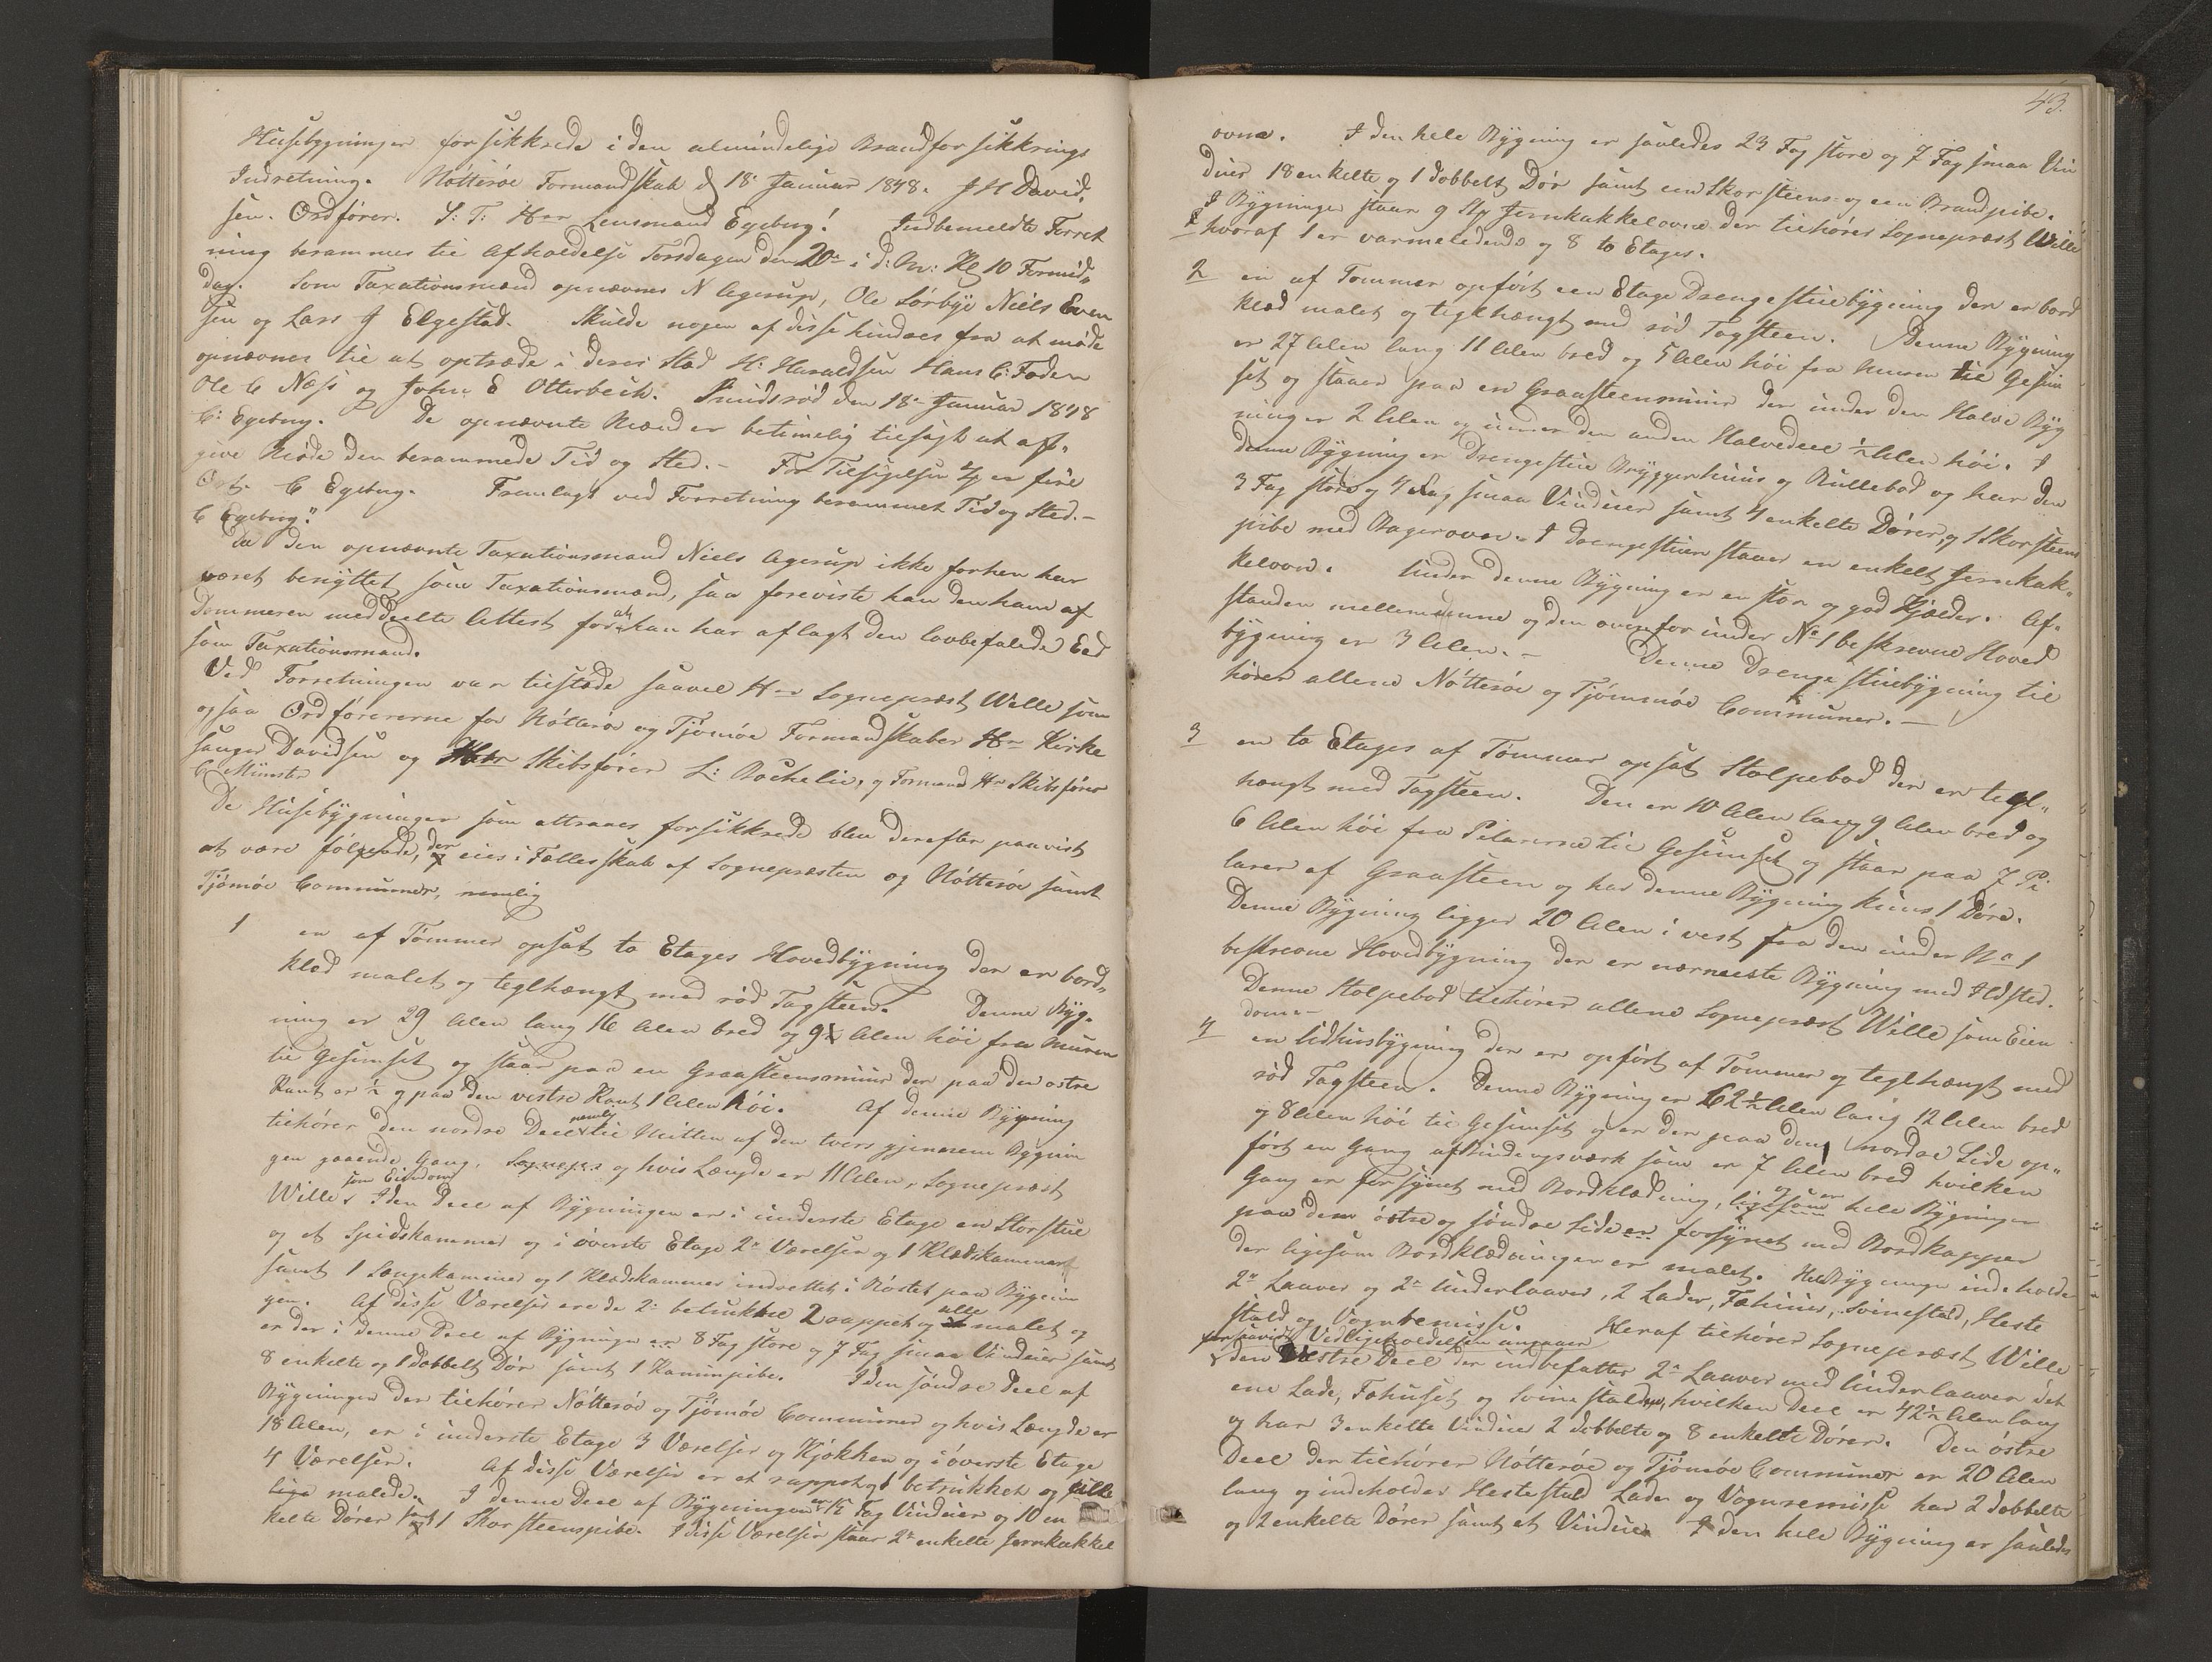 Husebygninger forsikkrede i den almindelige Brandforsikkrings
Indretning. Nötteröe Formandskab d 18 Januar 1848. J H David,
sen. Ordförer. S: T: Hrr Lensmand Egeberg! Indbemeldte Forret
ning berammes til Afholdelse Torsdagen den 20de i d: M: Kl 10 Formid„
dag. Som Taxationsmænd opnævnes N Agerup, Ole Sörbye Niels Even
sen og Lars J Elgestad. Skulde nogen af disse hindres fra at möde
opnævnes til at optræde i deres Sted H: Haraldsen Hans C: Foden
Ole C Næss og John E Otterbech. Smidsröd den 18de Januar 1848
C: Egeberg. De opnævnte Mænd er betimelig tilsagt at af„
give Möde den berammede Tid og Sted.– For Tilsigelsen er fire
Ort. C Egeberg. Fremlagt ved Forretning berammet Tid og Sted.–
C Egeberg".
Da den opnævnte Taxationsmand Niels Agerup ikke forhen har
været benyttet som Taxationsmand, saa foreviste han den ham af
Dommeren meddeelte Attest for at han har aflagt den lovbefalede Eed
som Taxationsmand.
Ved Forretningen var tilstæde saavel Hrr Sognepræst Wille som
ogsaa Ordförererne for Nötteröe og Tjömöe Formandskaber Hrr Kirke
sanger Davidsen og Skibsförer L: Bachelie, og Formand Hr Skibsförer
C Münster
De Husebygninger som attraaes forsikkrede blev derefter paavist
at være fölgende, der eies i Fællesskab af Sognepræsten og Nötteröe samt
Tjömöe Communer, nemlig
1 en af Tömmer opsat to Etages Hovedbygning der er bord„
klæd malet og teglhængt med röd Tagsteen. Denne Byg„
ning er 29 Alen lang 16 Alen bred og 9½ Alen höi fra Muren
til Gesimset og staar paa en Graasteensmuur der paa den östre
Kant er ½ og paa den vestre Kant 1 Alen höi. Af denne Bygning
tilhörer den nordre Deel nemlig til Mitten af den tvers gjennem Bygnin
gen gaaende Gang, og hvis Længde er 11 Alen, Sognepræst
Wille som Eiendom. I den Deel af Bygningen er i underste Etage en Storstue
og et Spidskammer og i överste Etage 2de Værelser og 1 Klædskammer
samt 1 Sengekammer og 1 Klædskammer indrettet i Röstet paa Bygnin
gen. Af disse Værelser ere de 2de betrukket 2 rappet og alle malet og
er der i denne Deel af Bygningen 8 Fag store og 7 Fag smaa Vinduer samt
8 enkelte og 1 dobbelt Dör samt 1 Kaminpibe. I den söndre Deel af
Bygningen der tilhörer Nötteröe og Tjömöe Communer og hvis Længde er
18 Alen, er i underste Etage 3 Værelser og Kjökken og i överste Etage
4 Værelser. Af disse Værelser er et rappet og 1 betrukket og alle
lige malede. I denne Deel af Bygningen er 15 Fag Vinduer og 10 en
kelte Dörer samt 1 Skorsteenspibe. I disse Værelser staar 2de enkelte Jernkakkel
43.
ovne. I den hele Bygning er saaledes 23 Fag store og 7 Fag smaa Vin
duer 18 enkelte og 1 dobbelt Dör samt een Skorsteens- og een Brandpibe.
I Bygningen staar 9 Stk Jernkakkelovne der tilhörer Sognepræst Wille
hvoraf 1 er varmeledende og 8 to Etages.
2 en af Tömmer opfört een Etage Drengestuebygning der er bord
klæd malet og teglhængt med röd Tagsteen. Denne Bygning
er 27 Alen lang 11 Alen bred og 5 Alen höi fra Muren til Gesim
set og staaer paa en Graasteensmuur der under den Halve Byg
ning er 2 Alen og under den anden Halvedeel ½ Alen höi. I
denne Bygning er Drengestue Bryggerhuus og Rullebod og har den
3 Fag store og 4 Fag smaa Vinduer samt 4 enkelte Dörer, og 1 Skorsteens
pibe med Bagerovn. I Drengestuen staaer en enkelt Jernkak„
kelovn. Under denne Bygning er en stor og god Kjælder. Af„
standen mellem denne og den ovenfor under No 1 beskrevne Hoved
bygning er 3 Alen.– Denne Drengestuebygning til
hörer allene Nötteröe og Tjömmöe Communer.–
3 en to Etages af Tömmer opsat Stolpebod der er tegl„
hængt med Tagsteen. Den er 10 Alen lang 9 Alen bred og
6 Alen höi fra Pilarerne til Gesimset og staar paa 7 Pi
larer af Graasteen og har denne Bygning kuns 1 Döre.
Denne Bygning ligger 20 Alen i vest fra den under No 1
beskrevne Hovedbygning der er nærmeste Bygning med Ildsted.
Denne Stolpebod tilhörer allene Sognepræst Wille som Eien
dom.–
4 en Udhusbygning der er opfört af Tömmer og teglhængt med
röd Tagsteen. Denne Bygning er 62½ Alen lang 12 Alen bred
og 8 Alen höi til Gesimset og er der paa den nordre Side op„
fört en Gang af Bindingsværk som er 7 Alen bred hvilken
Gang er forsynet med Bordklædning, ligesom og er hele Bygningen
paa den östre og söndre Side er forsynet med Bordkapper
der ligesom Bordklædningen er malet. Hele Bygningen indeholder
2de Laaver og 2de Underlaaver, 2 Lader, Fæhuus, Svinestald, Heste
stald og Vognremisse. Heraf tilhörer Sognepræst Wille
forsaavidt Vedligeholdelsen angaaer
den Vestre Deel der indbefatter 2de Laaver med Underlaaver det
ene Lade, Fæhuset og Svinestalden, hvilken Deel er 42½ Alen lang
og har 3 enkelte Vinduer 2 dobbelte og 8 enkelte Dörer. Den östre
Deel der tilhörer Nötteröe og Tjömöe Communer er 20 Alen
lang og indeholder Hestestald Lade og Vognremisse har 2 dobbelte
og 2 enkelte Dörer samt et Vindue. I den hele Bygning er saaledes